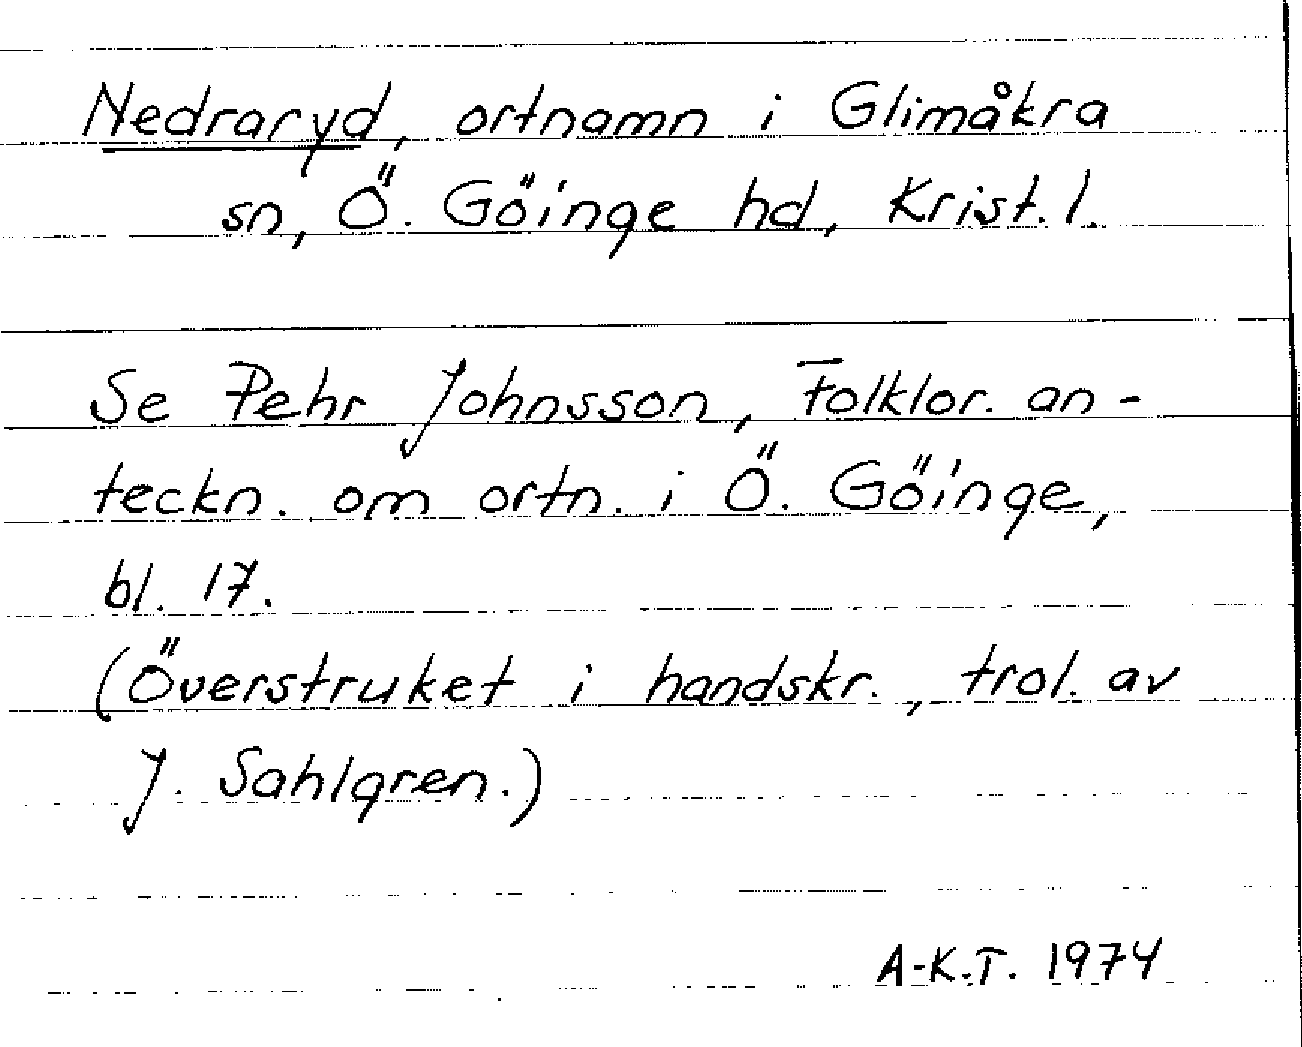 Nedraryd, ortnamn i Glimåkra
sn, Ö. Göinge hd, Krist. l.
Se Pehr Johnsson, Folklor. an-
teckn. om ortn. i Ö. Göinge,
bl. 17.
(Överstruket i handskr., trol. av
J. Sahlgren.)
A-K.T. 1974